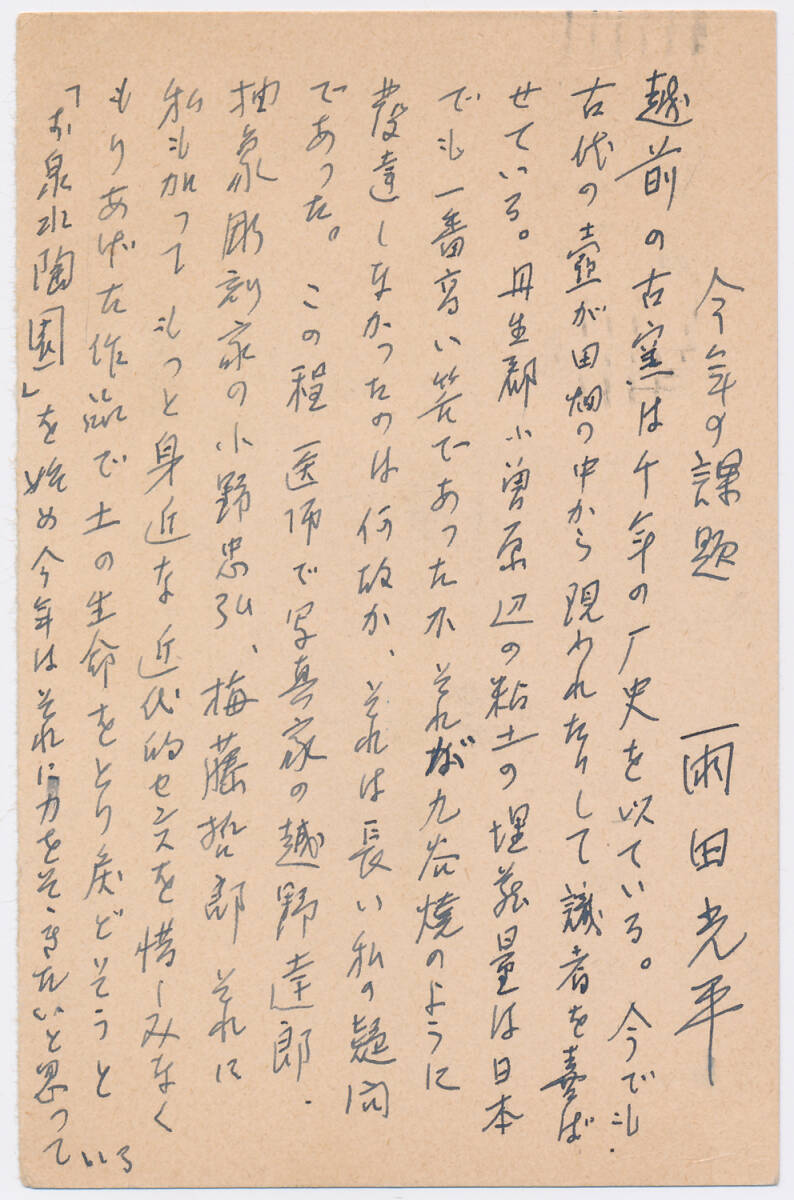 今年の課題
雨田光平
越前の古窯は千年の厂史を以ている。今でも
古代の壷が田畑の中から現われたりして識者を喜ば
せている。丹生郡小曽原辺の粘土の埋蔵量は日本
でも一番高い筈であったが それが九谷焼のように
発達しなかったのは何故か、それは長い私の疑問
であった。この程 医師で写真家の越野達郎.
抽象彫刻家の小野忠弘、梅藤哲郎 それに
私も加って もっと身近な近代的センスを惜しみなく
もりあげた作品で土の生命をとり戻どそうと
「お泉水陶園」を始め今年はそれに力をそゝぎたいと思って
いる